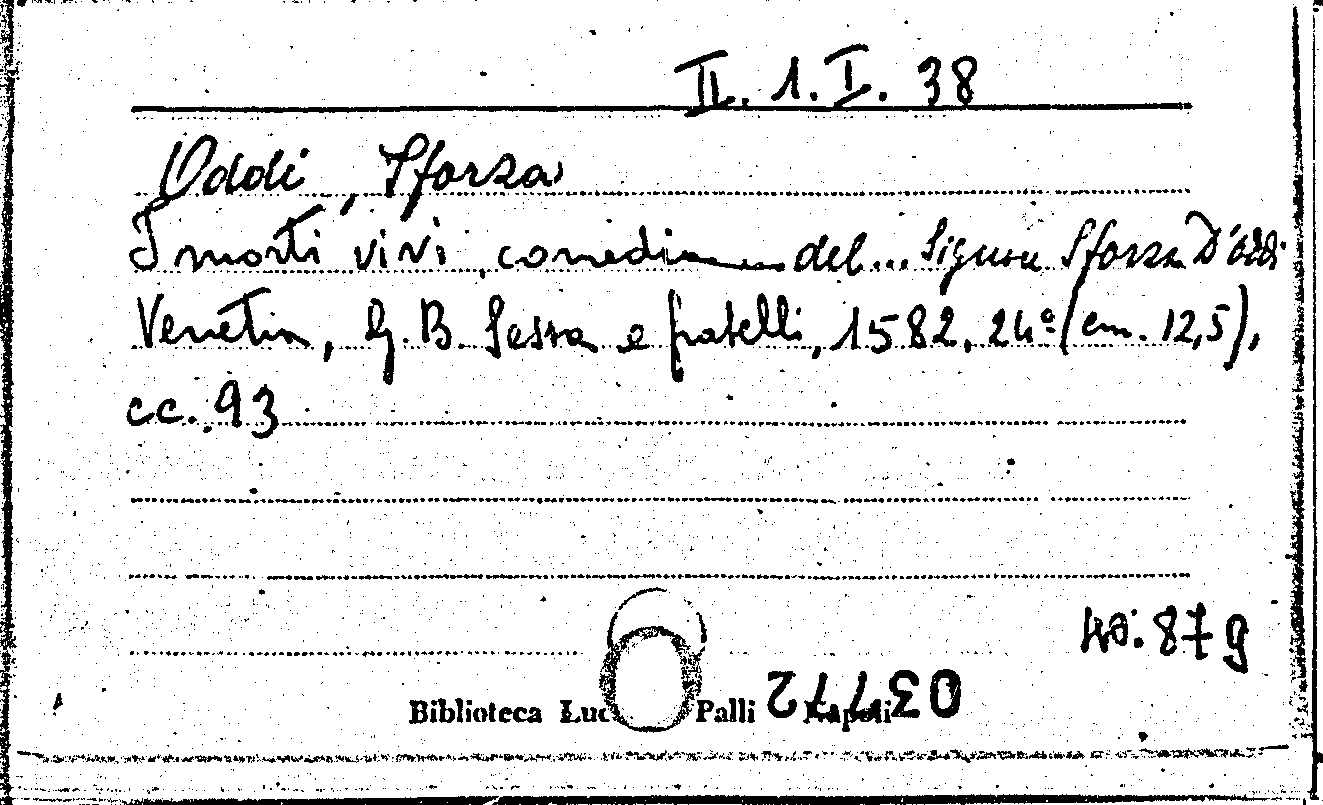 II. 1. I. 38
Oddi, Sforza
I morti vivi, comedia del... Signor Sforza D'Oddi
Venetia, G. B. Sessa e fratelli, 1582, 24º (cm. 12,5),
cc. 93
879
Biblioteca Palli Napoli
03772